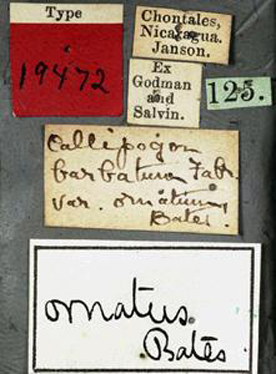 Type
19472
Chontales,
Nicaragua.
Janson.
Ex
Godman
and
Salvin.
125.
Callipogon
barbatum Fabr.
var. ornatum,
Bates.
ornatus.
Bates.